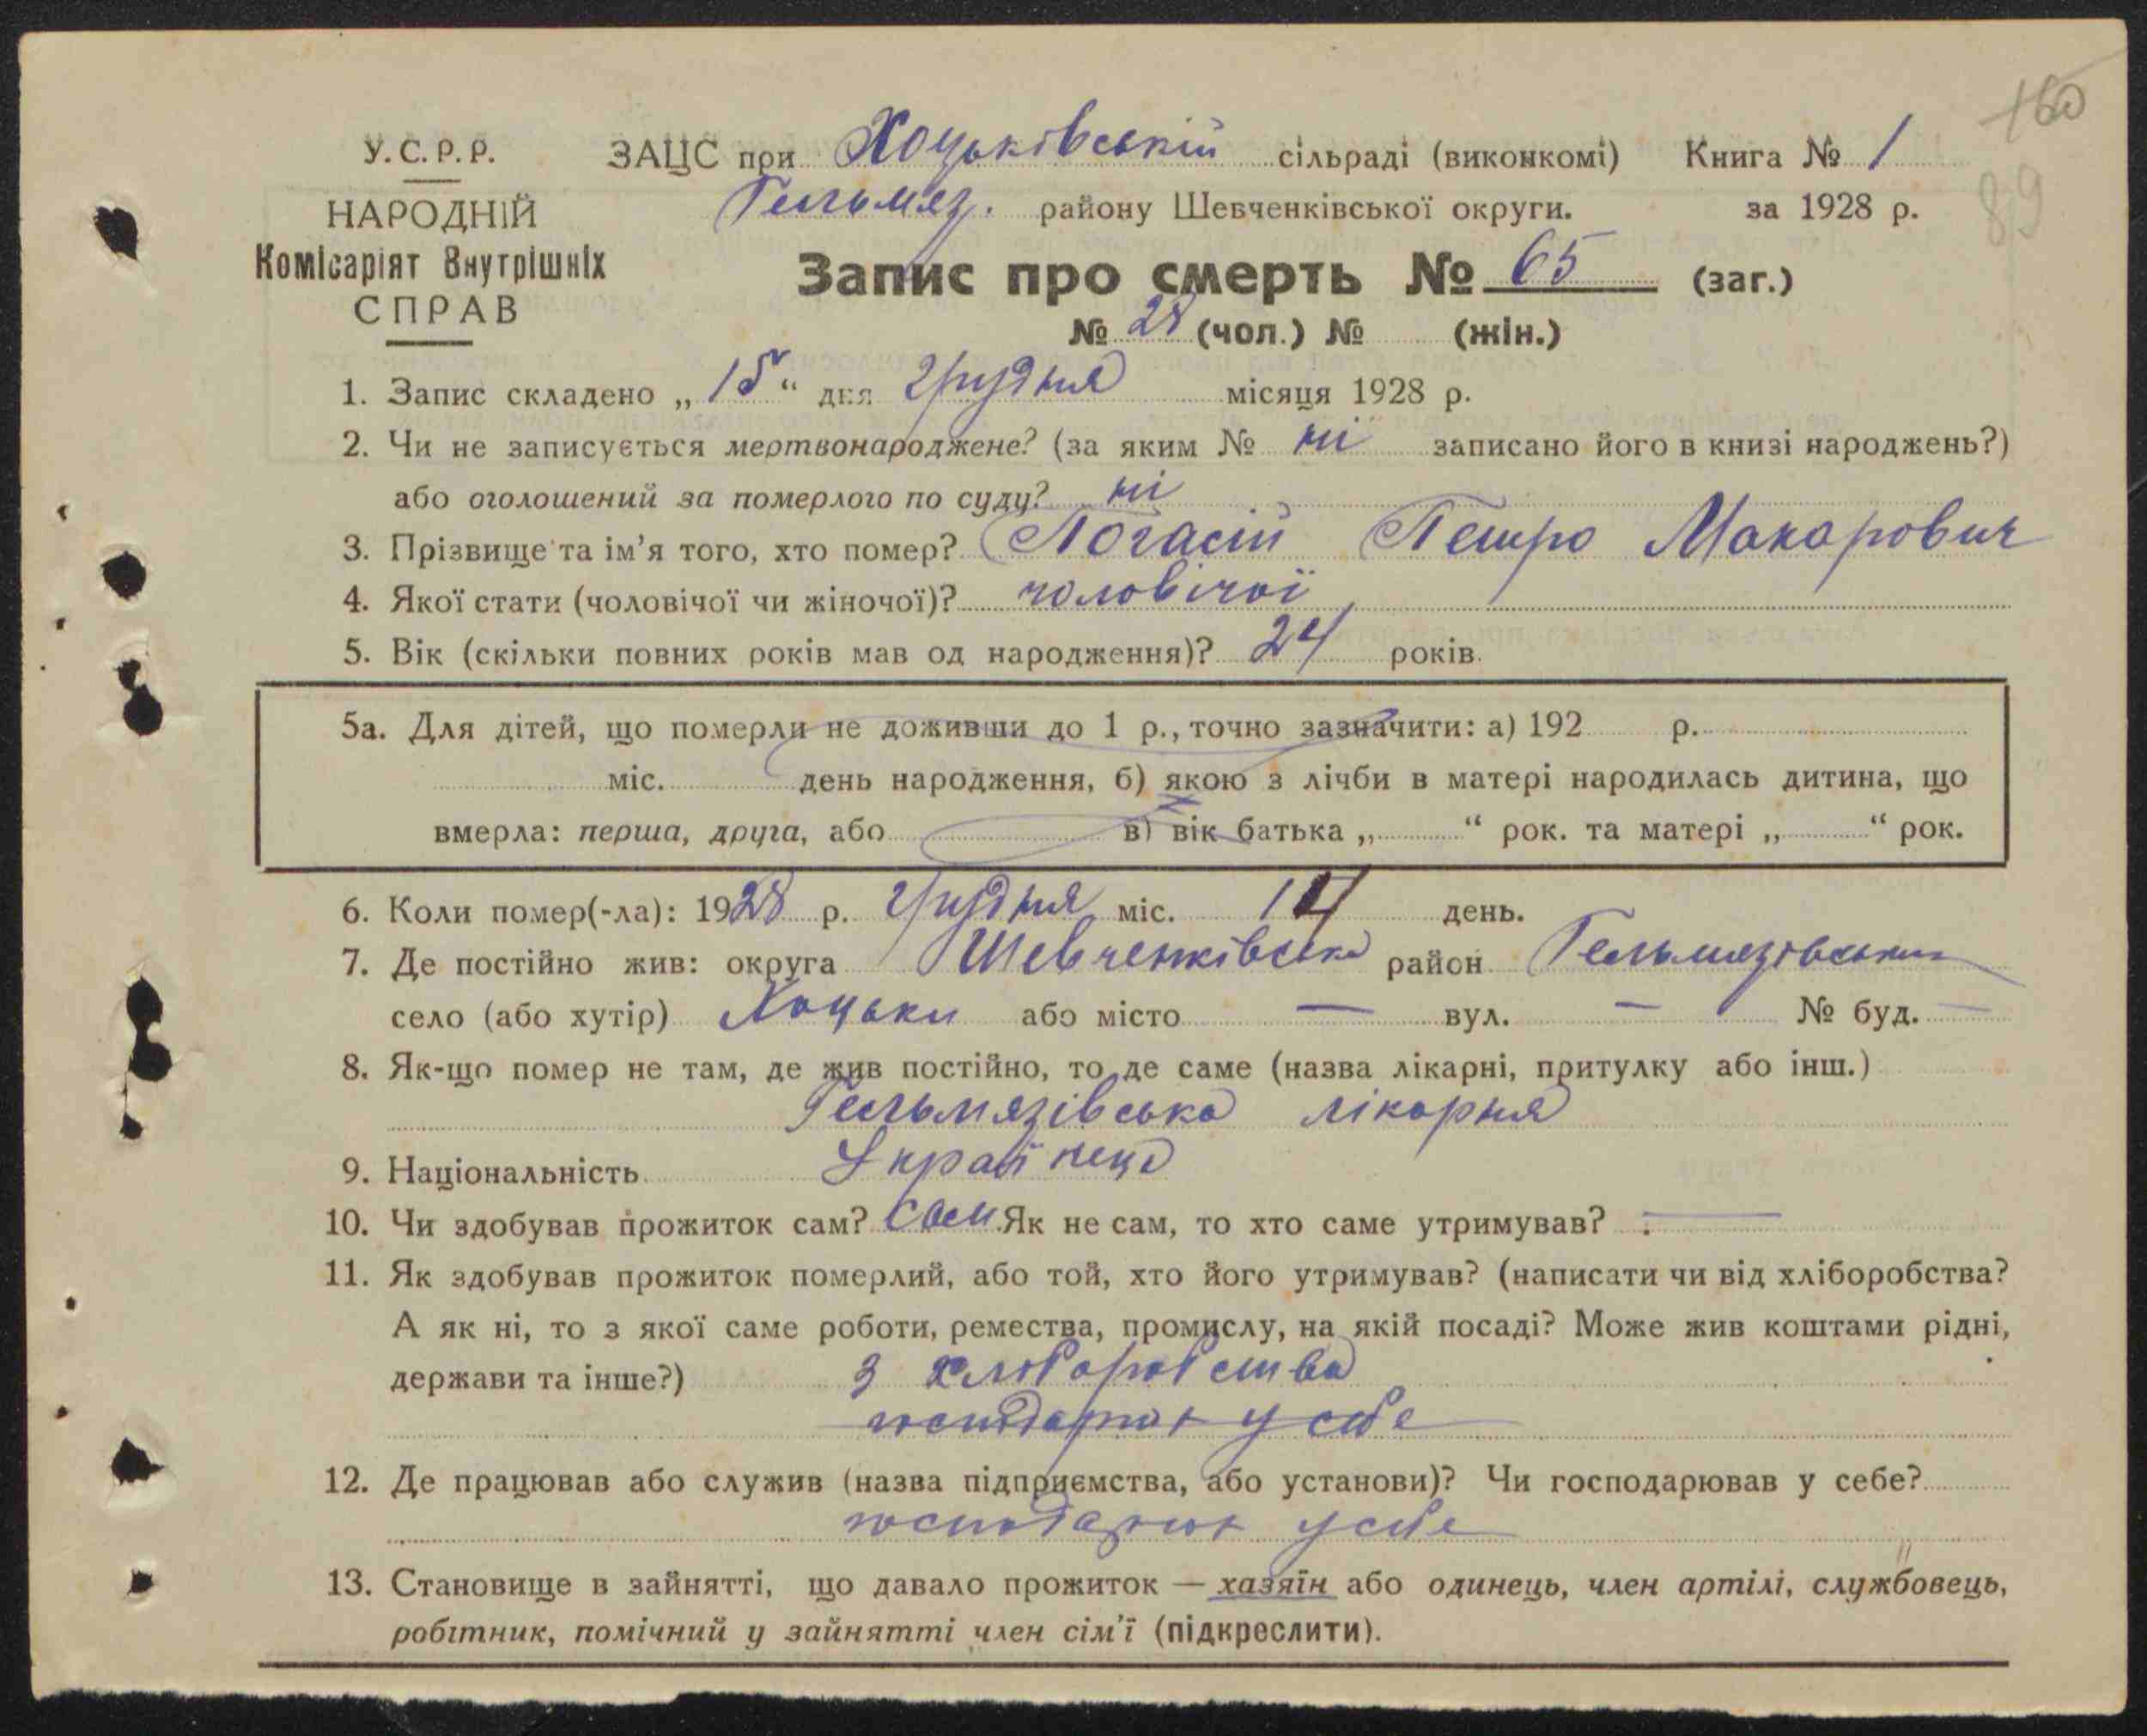 160
89
У.С.Р.Р.
НАРОДНІЙ
Комісаріят Внутрішніх
СПРАВ
ЗАЦС при Хоцьківській сільраді (виконкомі) Книга № 1
Гельмяз. району Шевченківської округи. за 1928 р.
Запис про смерть № 65 (заг.)
№ 28 (чол.) № (жін.)
1. Запис складено „15“ дня грудня місяця 1928 р.
2. Чи не записується мертвонароджене? (за яким № ні записано його в книзі народжень?)
або оголошений за померлого по суду? ні
3. Прізвище та ім’я того, хто помер? Погасій Петро Макарович
4. Якої стати (чоловічої чи жіночої)? чоловічої
5. Вік (скільки повних років мав од народження)? 24 років.
5а. Для дітей, що померли не доживши до 1 р., точно зазначити: а) 192 р.
міс. день народження, б) якою з лічби в матері народилась дитина, що
вмерла: перша, друга, або в) вік батька „ “ рок. та матері „ “ рок.
6. Коли помер(-ла): 1928 р. грудня міс. 14 день.
7. Де постійно жив: округа Шевченківська район Гельмязівський
село (або хутір) Хоцьки або місто — вул. — № буд. —
8. Як-що помер не там, де жив постійно, то де саме (назва лікарні, притулку або інш.)
Гельмязівська лікарня
9. Національність Українець
10. Чи здобував прожиток сам? Сам Як не сам, то хто саме утримував? —
11. Як здобував прожиток померлий, або той, хто його утримував? (написати чи від хліборобства?
А як ні, то з якої саме роботи, ремества, промислу, на якій посаді? Може жив коштами рідні,
держави та інше?) з хліборобства
господарюв у себе
12. Де працював або служив (назва підприємства, або установи)? Чи господарював у себе?
господарюв у себе
13. Становище в зайнятті, що давало прожиток — хазяїн або одинець, член артілі, службовець,
робітник, помічний у зайнятті член сім’ї (підкреслити).